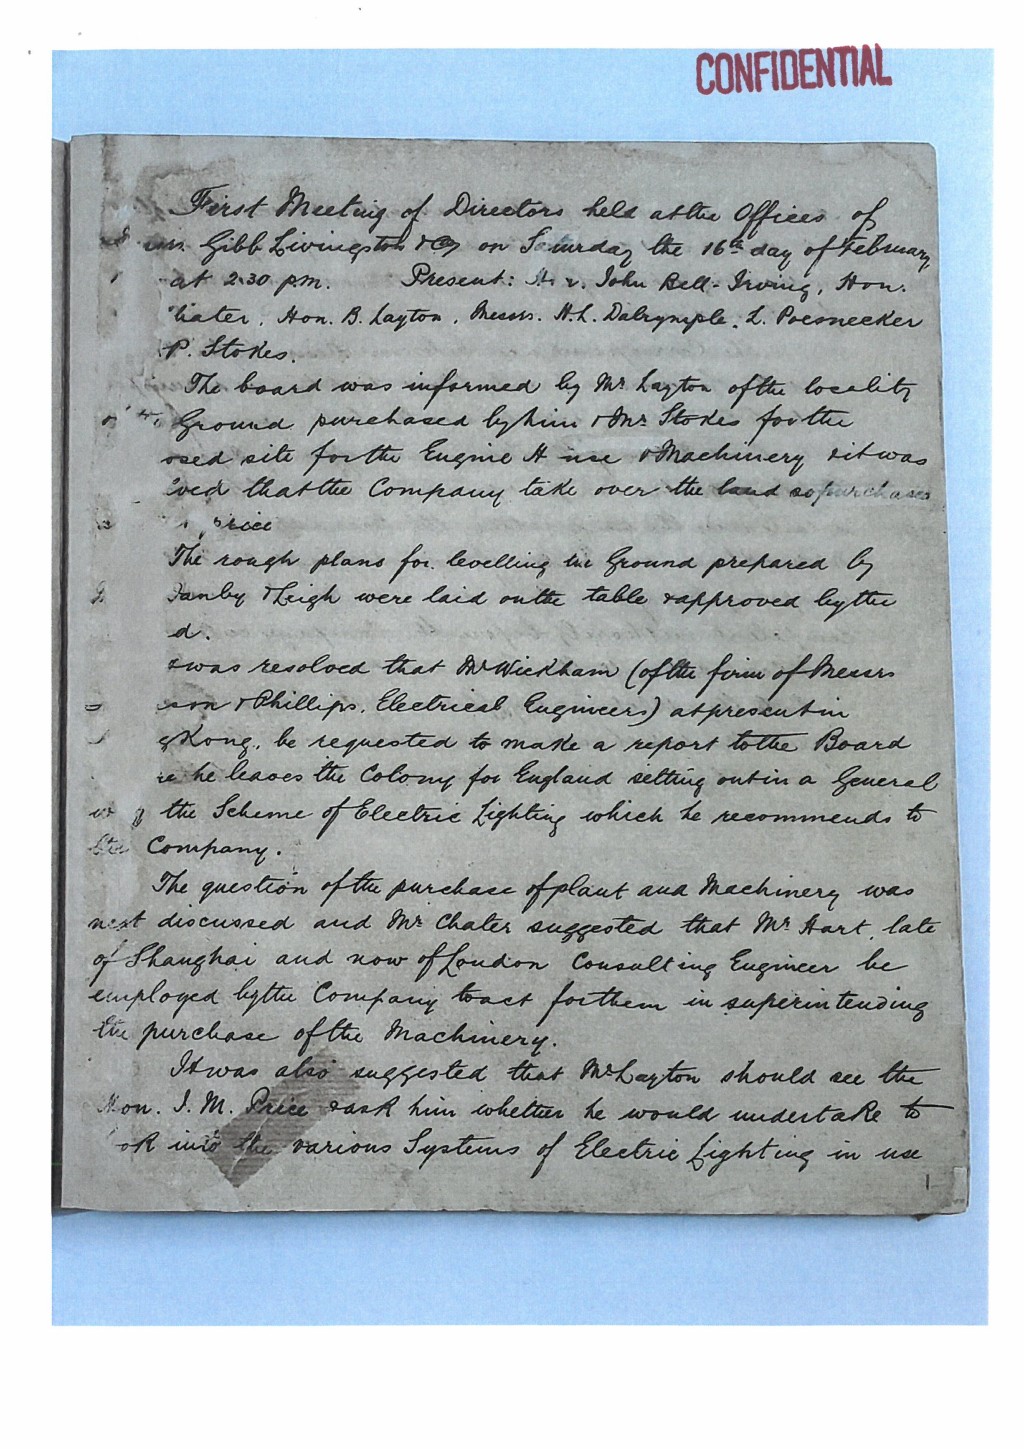 CONFIDENTIAL
First Meeting of Directors held at the Offices of
Gibb Livingston & Co on Saturday the 16th day of February
at 2.30 p.m. Present: John Bell-Irving, Hon.
hater, Hon. B. Layton, Messrs. H.L. Dalrymple, L. Poesnecker
P. Stokes.
The board was informed by Mr Layton of the locality
Ground purchased by him & Mr Stokes for the
osed site for the Engine H use & Machinery & it was
lved that the Company take over the land so purchased
rice
The rough plans for levelling the Ground prepared by
Danby & Leigh were laid on the table & approved by the
d.
t was resolved that Mr Wickham (of the firm of Messrs
son & Phillips, Electrical Engineers) at present in
g Kong, be requested to make a report to the Board
re he leaves the Colony for England setting out in a General
the Scheme of Electric Lighting which he recommends to
the Company.
The question of the purchase of plant and Machinery was
next discussed and Mr Chater suggested that Mr Hart, late
of Shanghai and now of London Consulting Engineer be
employed by the Company to act for them in superintending
the purchase of the Machinery.
It was also suggested that Mr Layton should see the
Hon. J. M. Price & ask him whether he would undertake to
ok into the various Systems of Electric Lighting in use
1